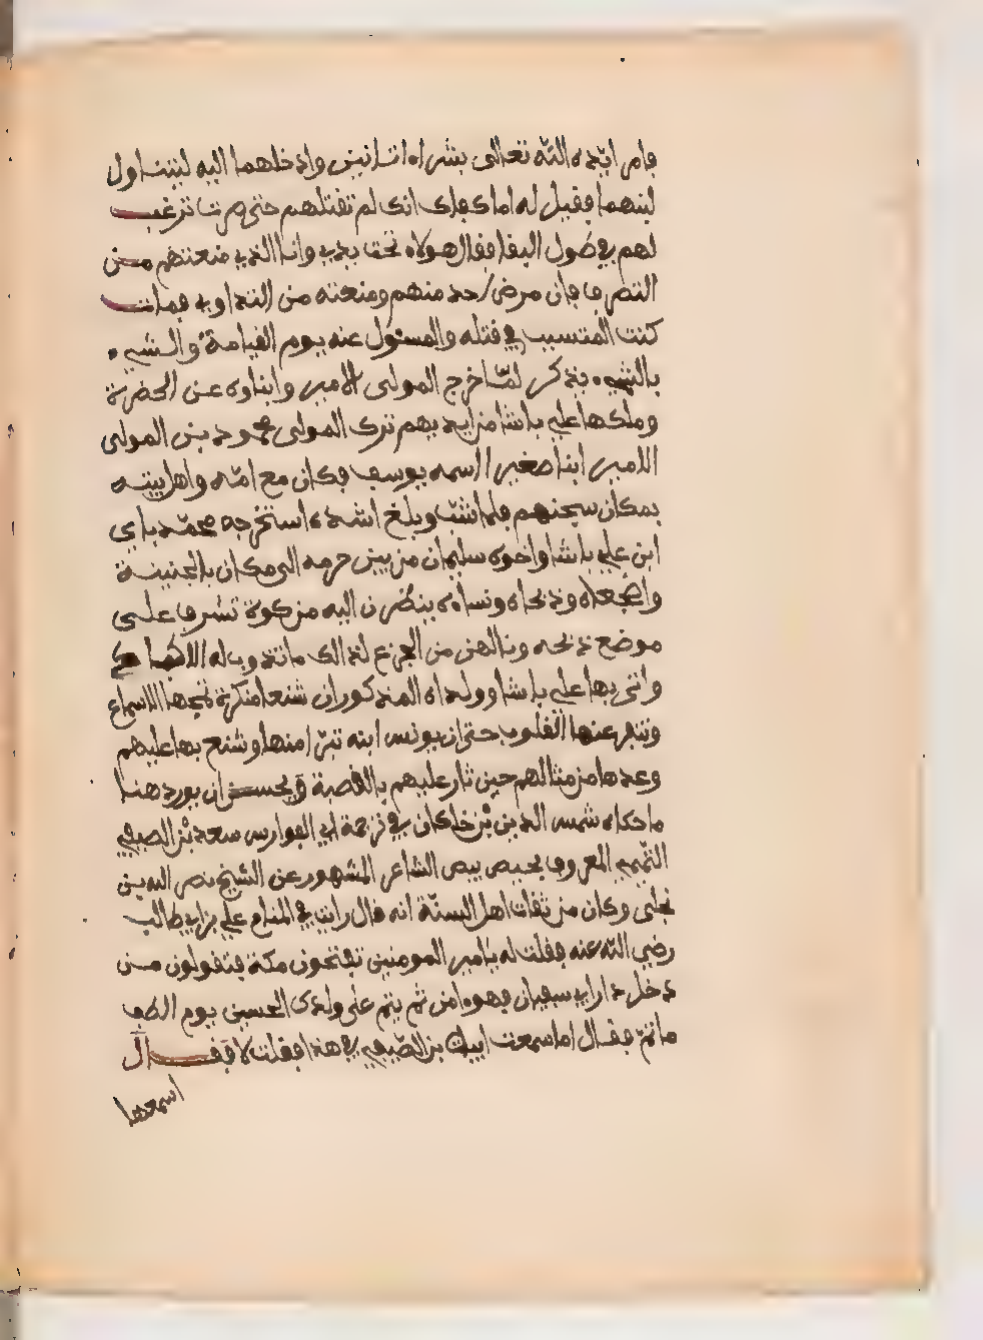 فامر ايّده اللّه تعالى بشراء اتانين وادخلهما اليه ليتناول
لبنهما فقيل له اما كفاك انك لم تقتلهم حتى صرت ترغب
لهم في طول البقا فقال هولاء تحت يدي وانا الذي منعتهم من
التصرف فان مرض احد منهم ومنعته من التداوي فمات
كنت المتسبب في قتله والمسئول عنه يوم القيامة والشيء
بالشيء يذكر لمّا خرج المولى الامير وابناوه عن الحضرة
وملكها علي باشا من ايديهم ترك المولى محمود بن المولى
الامير ابنا صغيرا اسمه يوسف فكان مع امّه واهل بيته
بمكان سجنهم فلما شبّ وبلغ اشده استخرجه محمّد باي
ابن علي باشا واخوه سليمان من بين حرمه الى مكان بالجنينة
واضجعاه وذبحاه ونساوه ينظرن اليه من كوة تشرف على
موضع ذبحه ونالهن من الجزع لذلك ما تذوب له الاكباد
واتى بها علي باشا وولداه المذكوران شنعا منكرة تمجها الاسماع
وتنفر عنها القلوب حتى ان يونس ابنه تبرّا منها وشنع بها عليهم
وعدها من مثالبهم حين ثار عليهم بالقصبة ويحسن ان يورد هنا
ما حكاه شمس الدين بن خلكان في ترجمة ابي الفوارس سعد بن الصيفي
التّميمي المعروف بحيص بيص الشاعر المشهور عن الشيخ نصر الله بن
مجلى وكان من ثقات اهل السنّة انه قال رايت في المنام علي بن ابي طالب
رضي اللّه عنه فقلت له يا مير المومنين تفتحون مكة فتقولون من
دخل دار ابي سفيان فهو ءامن ثم يتم على ولدك الحسين يوم الطف
ما تمّ فقال اما سمعت ابيات بن الصّيفي في هذا فقلت لا فقال
اسمعها